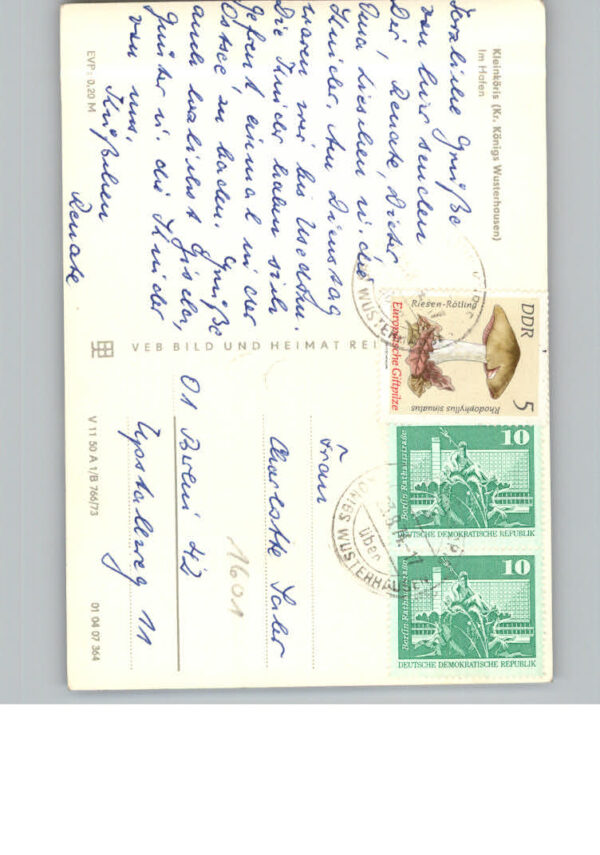 Kleinköris (Kr. Königs Wusterhausen)
Im Hafen
Herzliche Grüße
von hier senden
Dir, Renate, Dieter
Oma Lieschen u. die
Kinder. Am Dienstag
waren wir bis Usedom.
Die Kinder haben sich
gefreut einmal in der
Ostsee zu baden. Grüße
auch herzlichst Gisela,
Günter u. die Kinder
von uns.
Küßchen
Renate
EVP: 0,20 M
VEB BILD UND HEIMAT REI
V 11 50 A 1/B 766/73
01 04 07 364
Frau
Charlotte
1601
01 Berlin 42
11
DDR
5
Riesen-Rötling
Rhodophyllus sinuatus
Europäische Giftpilze
10
Berlin, Rathausstraße
DEUTSCHE DEMOKRATISCHE REPUBLIK
10
Berlin, Rathausstraße
DEUTSCHE DEMOKRATISCHE REPUBLIK
KÖNIGS WUSTERHAUSEN
über
WUSTERHAUSEN